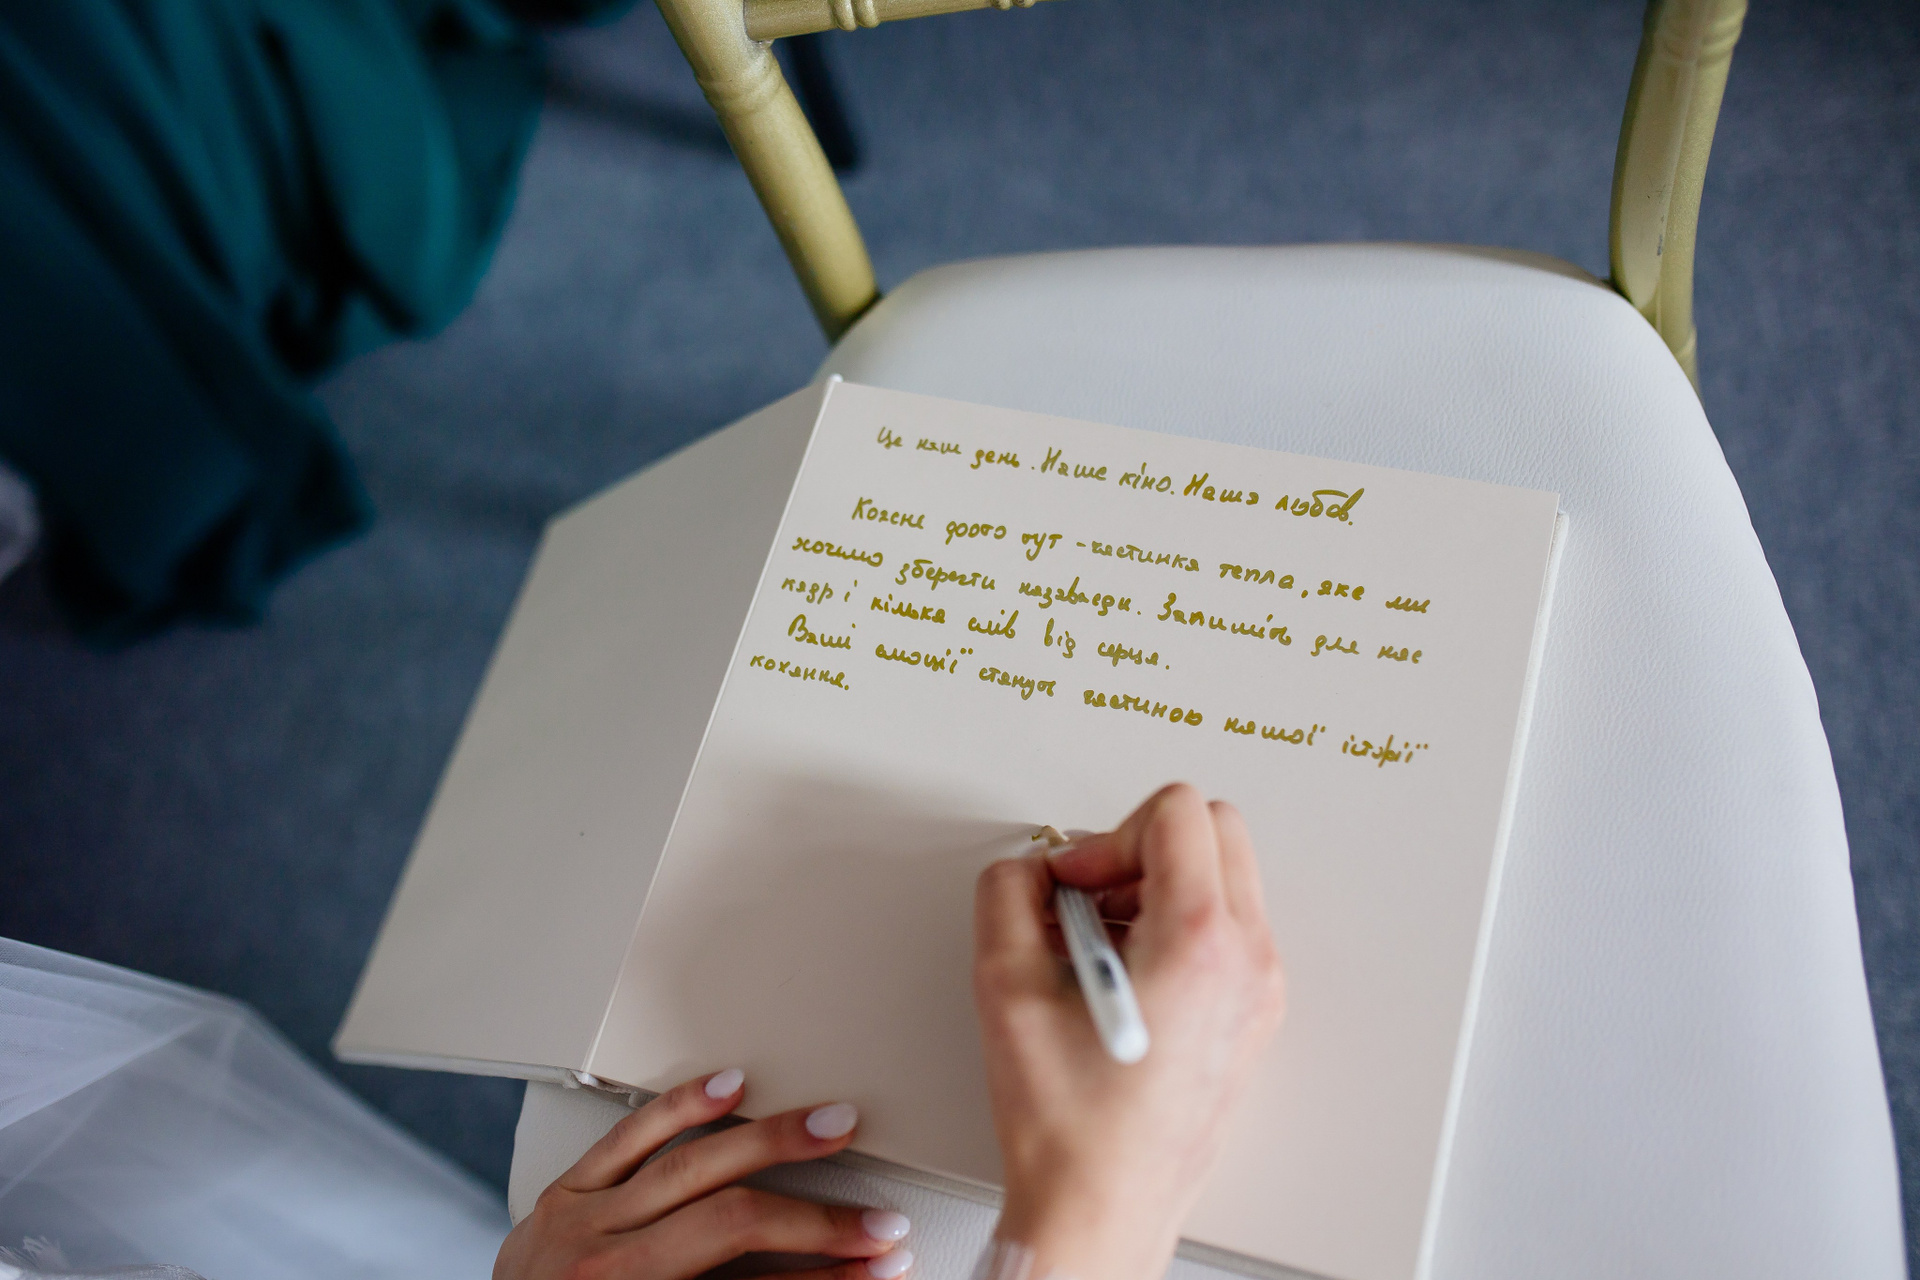 Це наш день. Наше кіно. Наша любов.
Кожне фото тут - частинка тепла, яке ми
хочемо зберегти назавжди. Залишіть для нас
кадр і кілька слів від серця.
Ваші емоції стануть частиною нашої історії
кохання.